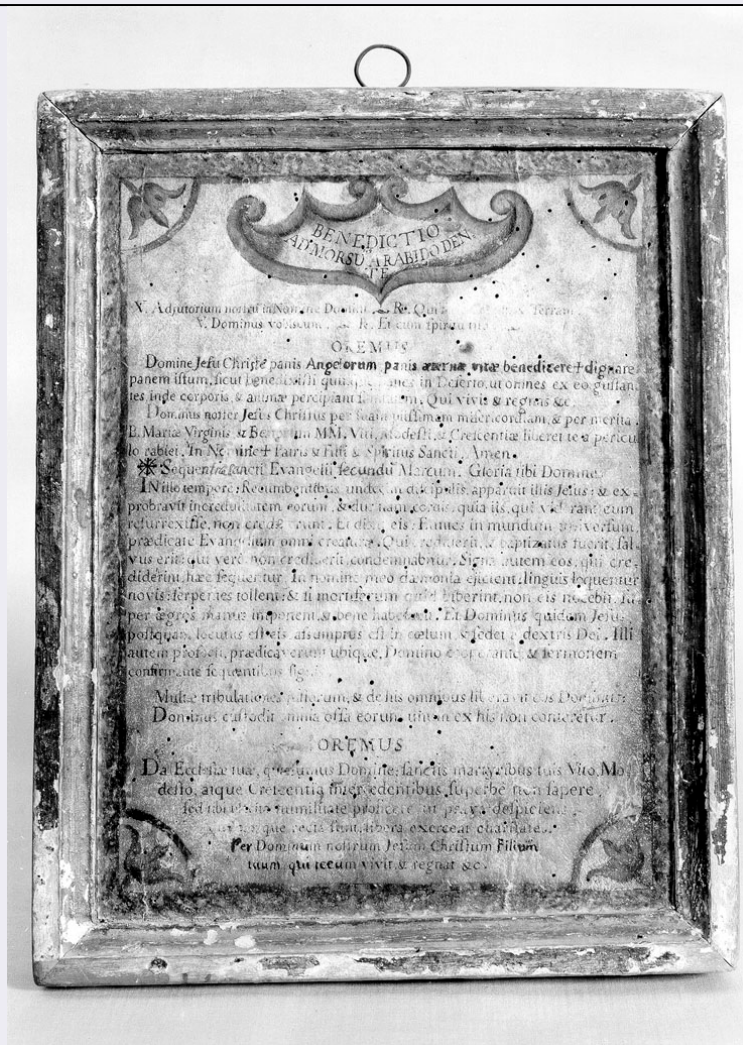 BENEDICTIO
AD MORSŨ A RABIDO DEN
TE
V. Adjutorium nostrũ in Nomine Domini Re. Qui Terram
V. Dominus vobiscum. Re. Et cum spiritu tuo
OREMUS
Domine Jesu Christe panis Angelorum panis æternæ vitæ benedicere ✝ dignare
panem istum, sicut benedixisti quinque panes in Deserto, ut omnes ex eo gustan
tes inde corporis, & animæ percipiant sanitatem. Qui vivis & regnas &c.
Dominus noster Jesus Christus per suam piissimam misericordiam, & per merita
B. Mariæ Virginis, & Beatorum MM. Viti, Modesti, & Crescentiæ liberet te a pericu
lo rabiei. In Nomine ✝ Patris & Filii & Spiritus Sancti. Amen.
Sequentia sancti Evangelii secundũ Marcum. Gloria tibi Domine.
IN illo tempore: Recumbentibus undecim discipulis, apparuit illis Jesus: & ex
probravit incredulitatem eorum, & duritiam cordis: quia iis, qui viderant eum
resurrexisse, non crediderunt. Et dixit eis: Euntes in mundum universum,
prædicate Evangelium omni creaturæ. Qui crediderit, & baptizatus fuerit, sal
vus erit: qui verò non crediderit condemnabitur. Signa autem eos, qui cre
diderint, hæc sequentur. In nomine meo dæmonia ejicient: linguis loquentur
novis: serpentes tollent: & si mortiferum quid biberint, non eis nocebit: su
per ægros manus imponent, & bene habebunt. Et Dominus quidem Jesus
postquam locutus est eis, assumptus est in cœlum, & sedet a dextris Dei. Illi
autem profecti, prædicaverunt ubique, Domino cooperante, & sermonem
confirmante sequentibus signis.
Multæ tribulationes justorum, & de his omnibus liberavit eos Dominus.
Dominus custodit omnia ossa eorum, unum ex his non conteretur.
OREMUS
Da Ecclesiæ tuæ, quæsumus Domine, sanctis martyribus tuis Vito, Mo
desto, atque Crescentia intercedentibus superbè non sapere,
sed tibi placita humilitate proficere ut prava despiciens,
quæcumque recta sunt, libera exerceat charitate.
Per Dominum nostrum Jesum Christum Filium
tuum qui tecum vivit & regnat &c.